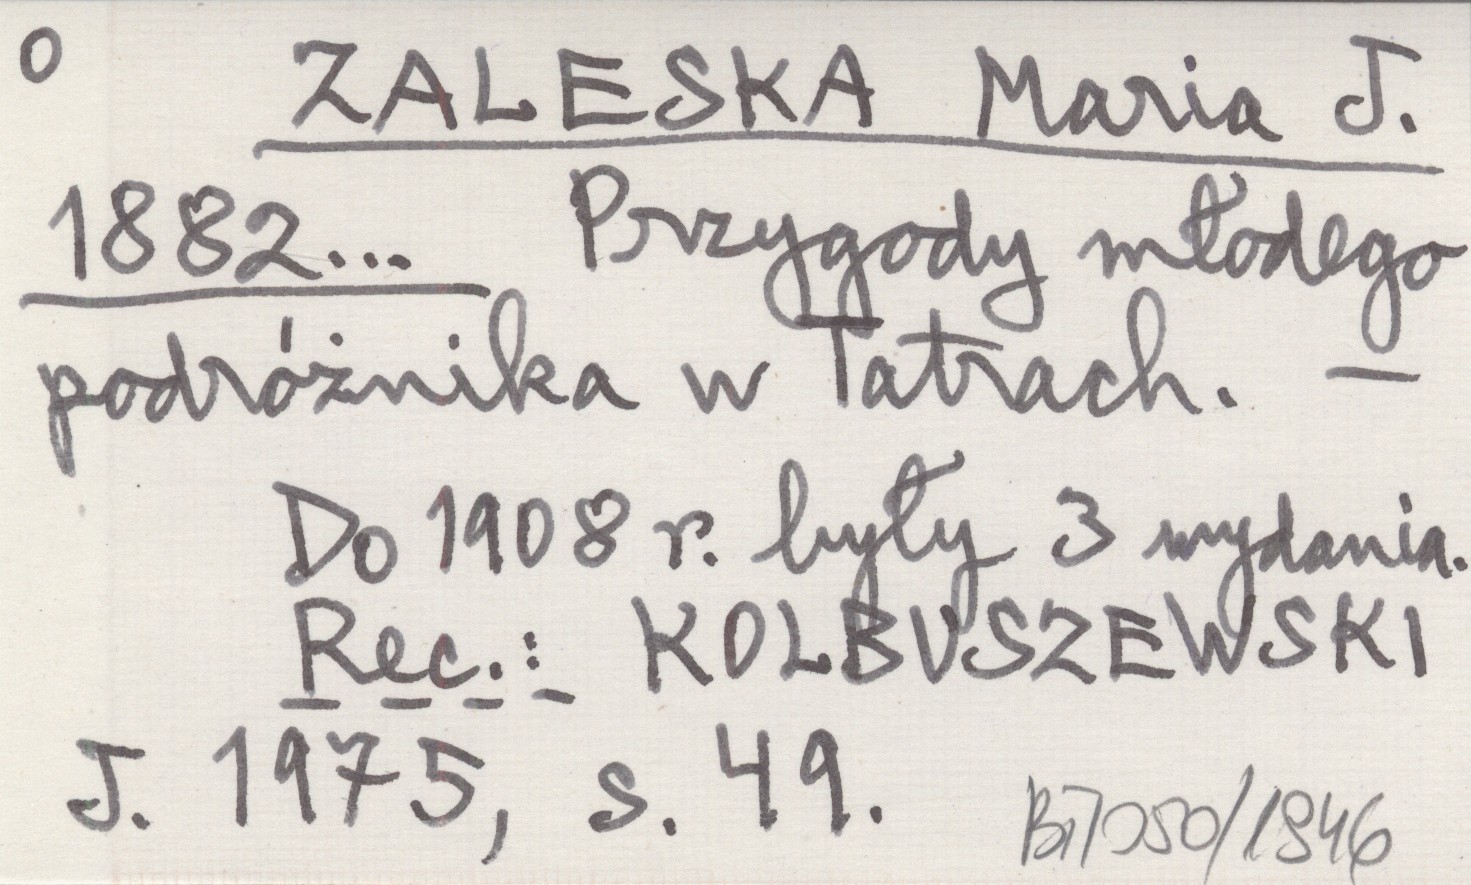 O ZALESKA Maria J.
1882... Przygody młodego
podróżnika w Tatrach. —
Do 1908 r. były 3 wydania.
Rec.: KOLBUSZEWSKI
J. 1975, s. 49.